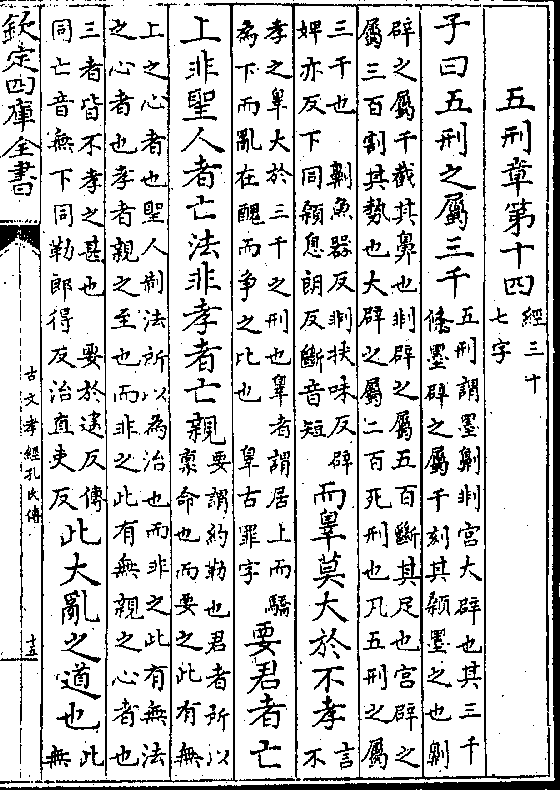 五刑章第十四
經三十
七字
子曰五刑之屬三千
五刑謂墨劓剕宫大辟也其三千
條墨辟之屬千刻其顙墨之也劓
辟之屬千截其鼻也剕辟之屬五百斷其足也宫辟之
屬三百割其勢也大辟之屬二百死刑也凡五刑之屬
三千也 劓魚器反剕扶味反辟
婢亦反下同顙息朗反斷音短
而辠莫大於不孝
言
不
孝之辠大於三千之刑也辠者謂居上而驕
為下而亂在醜而争之比也 辠古罪字
要君者亡
上非聖人者亡法非孝者亡親
要謂約勒也君者所以
禀命也而要之此有無
上之心者也聖人制法所以為治也而非之此有無法
之心者也孝者親之至也而非之此有無親之心者也
三者皆不孝之甚也 要於遥反傳
同亡音無下同勒郎得反治直吏反
此大亂之道也
此
無
欽定四庫全書
古文孝經孔氏傳
十五